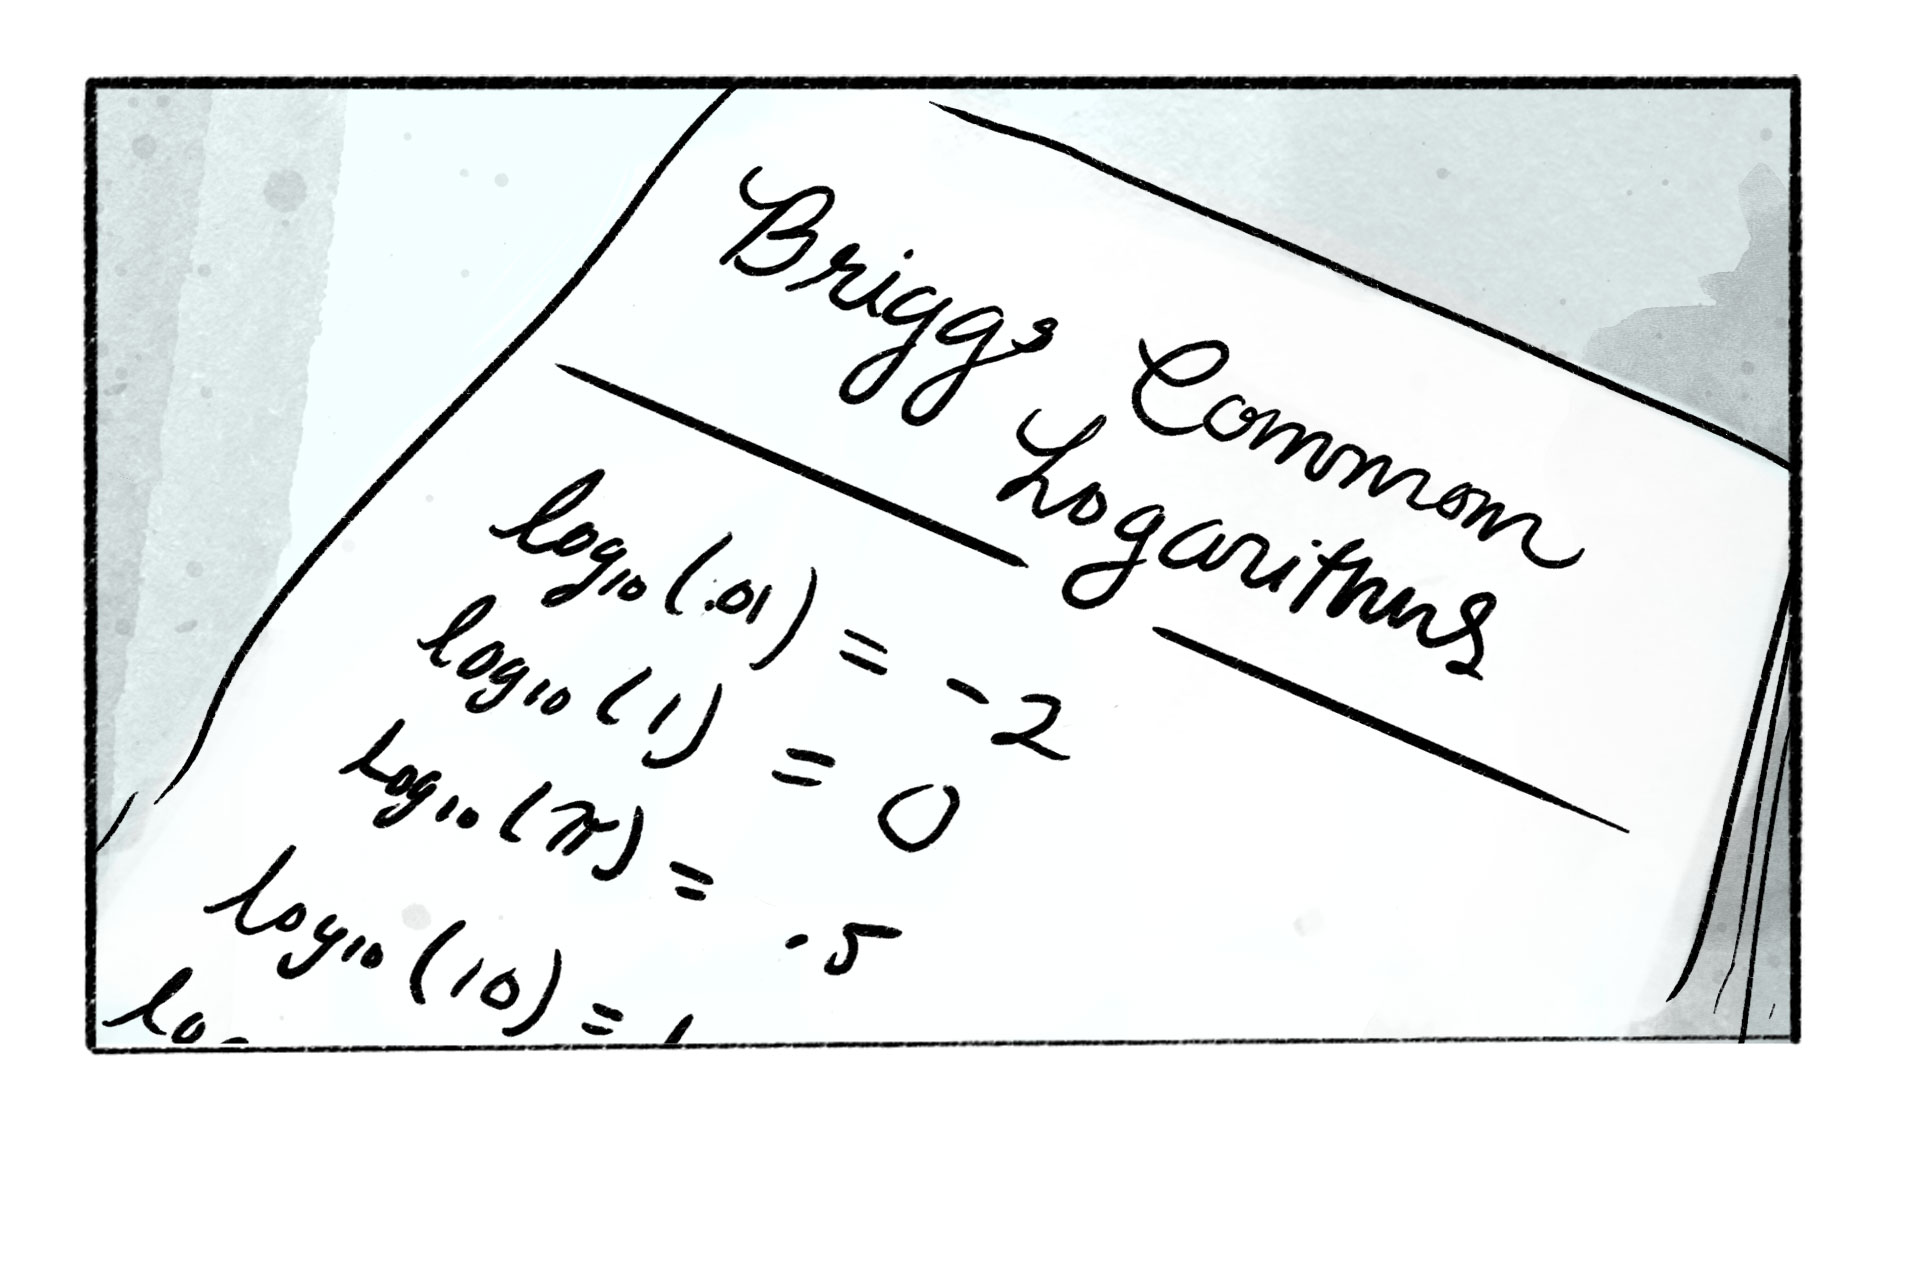 Briggs Common
Logarithms
log₁₀ (.01) = -2
log₁₀ (1) = 0
log₁₀ (π) = .5
log₁₀ (10) = 1
lo